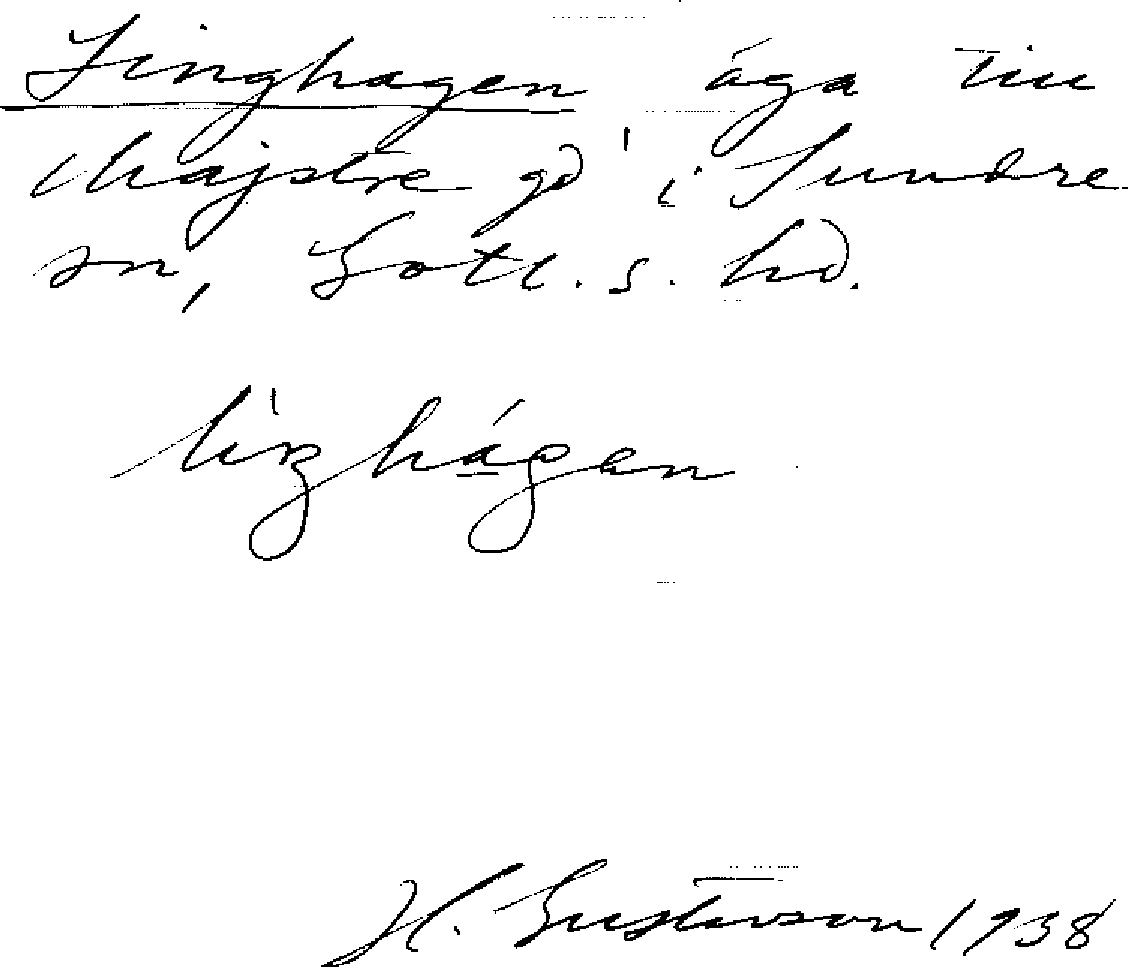 Linghagen äga till
Majstre gd i Sundre
sn, Gotl. s. hd.
liŋhágen
H. Gustavson 1938